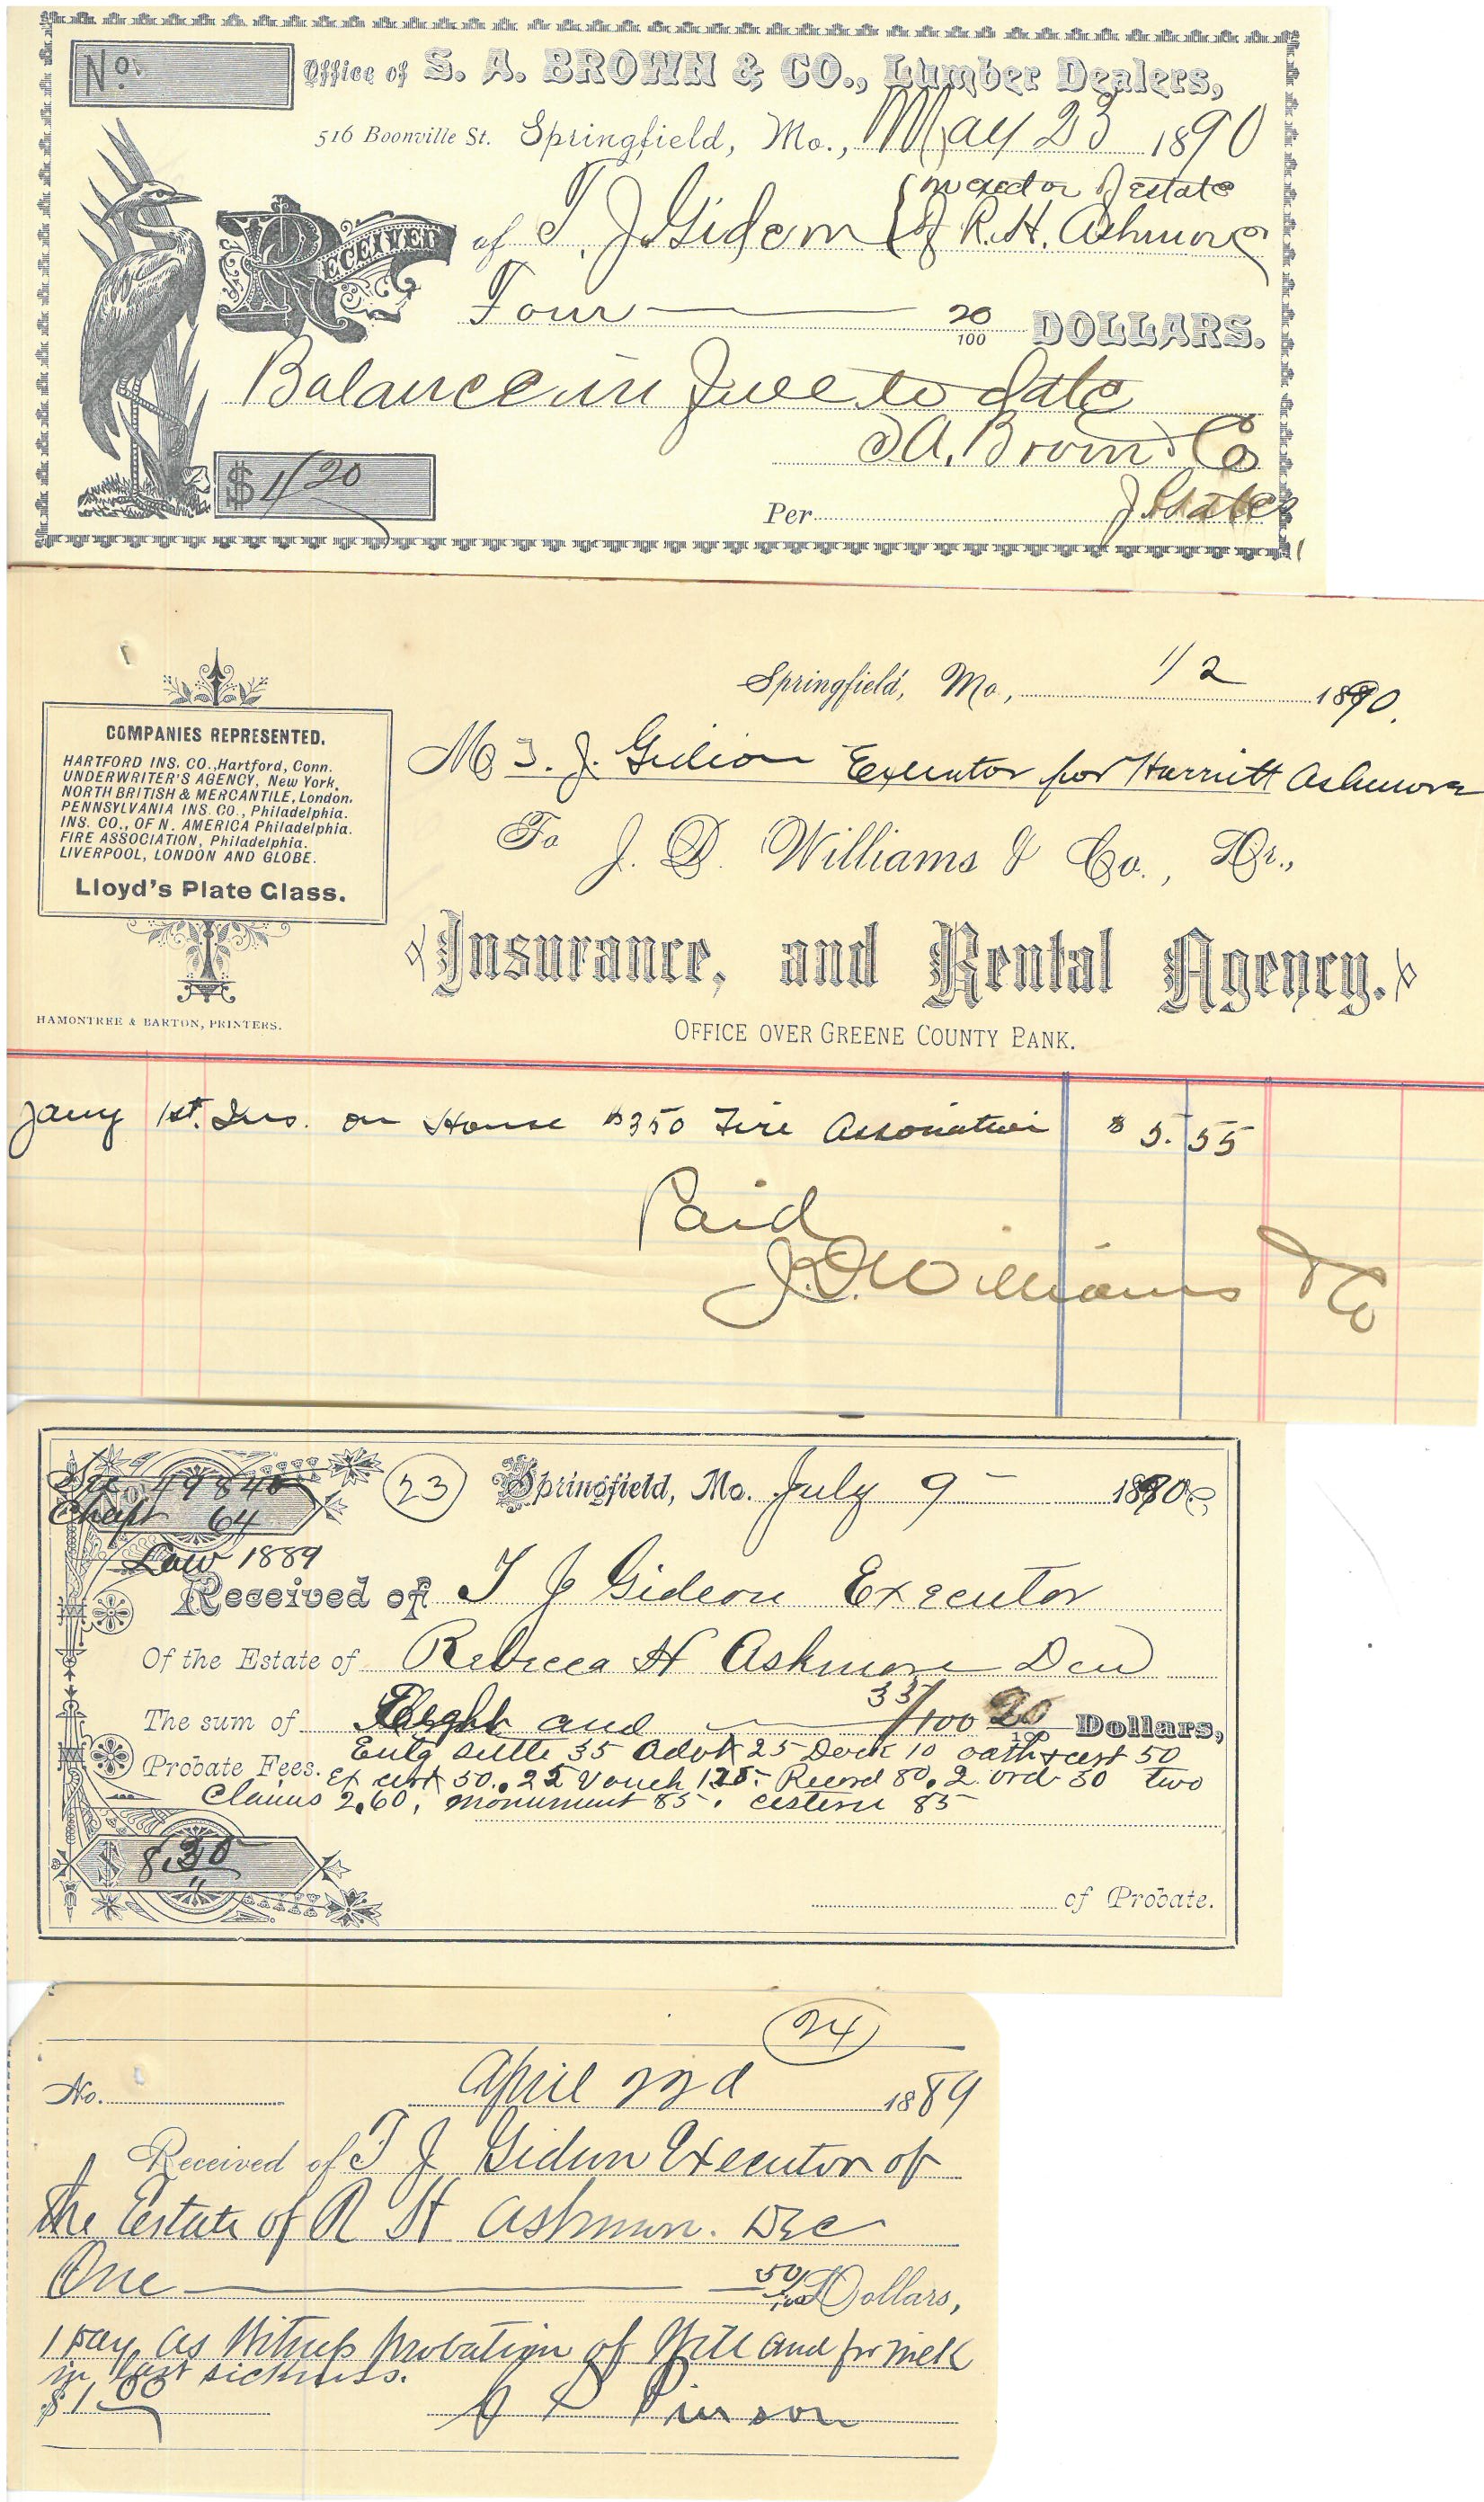 No.
Office of S. A. BROWN & CO., Lumber Dealers,
516 Boonville St. Springfield, Mo., May 23 1890
RECEIVED of T. J. Gideon { in ex'd or of estate
of R. H. Ashmore
Four 20/100 DOLLARS.
Balance in full to date
S A. Brown & Co
$ 4/20
Per J. States
Springfield, Mo., 1/2 1890.
COMPANIES REPRESENTED.
HARTFORD INS. CO., Hartford, Conn.
UNDERWRITER'S AGENCY, New York.
NORTH BRITISH & MERCANTILE, London.
PENNSYLVANIA INS. CO., Philadelphia.
INS. CO., OF N. AMERICA Philadelphia.
FIRE ASSOCIATION, Philadelphia.
LIVERPOOL, LONDON AND GLOBE.
Lloyd's Plate Glass.
HAMONTREE & BARTON, PRINTERS.
M T. J. Gideon Executor for Harriett Ashmore
To J. D. Williams & Co., Dr.,
Insurance, and Rental Agency.
OFFICE OVER GREENE COUNTY BANK.
Jany 1st. Ins. on House $350 Fire Association $5.55
Paid
J. D. Williams & Co
See 49840
Chapt 64
Law 1889
23
Springfield, Mo. July 9 - 1890
Received of T J Gideon Executor
Of the Estate of Rebecca H Ashmore Decd
The sum of Eight and 35/100 20 Dollars,
Probate Fees. Entg settle 35 Advt 25 Dock 10 oath & cert 50
Ex cert 50. 25 Vouch 125 - Record 80. 2 ord 50 two
Claims 2,60, monument 85. cistern 85
$ 8.30
of Probate.
24
No. April 22d 1889
Received of T J Gideon Executor of
the Estate of R H Ashmore. Dec
One 50/100 Dollars,
1 Day as Witness Probation of Will and for milk
in last sickness.
$1.00
Pinson